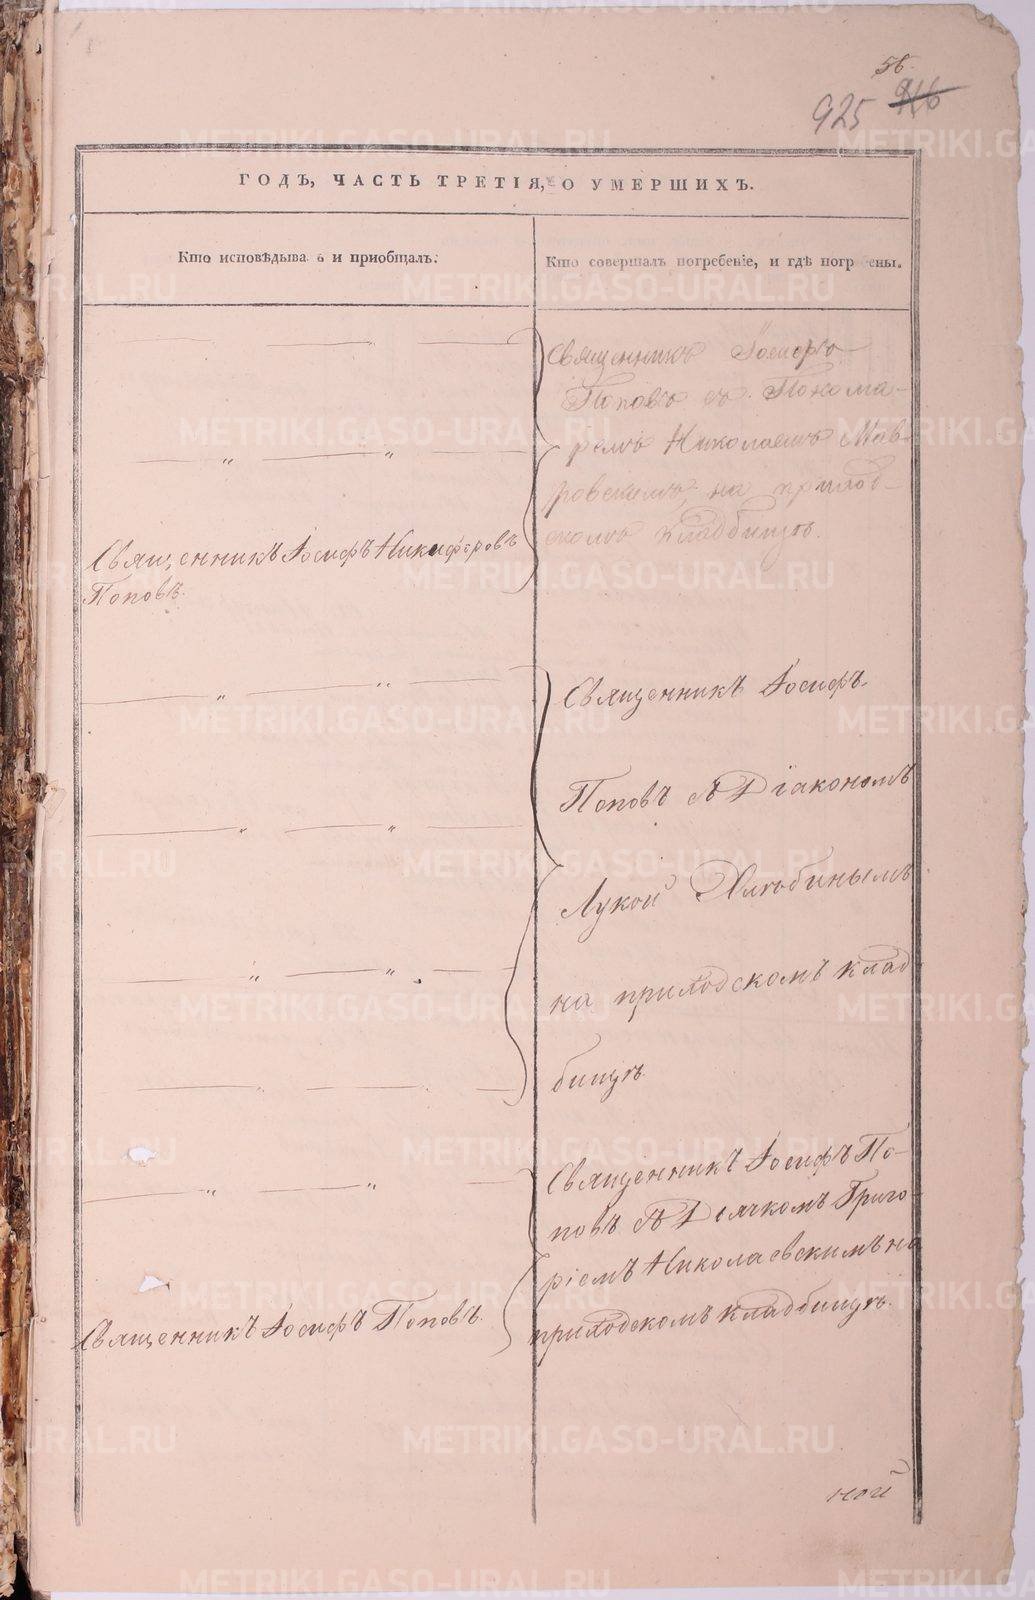 56.
925 946
ГОДЪ, ЧАСТЬ ТРЕТІЯ, О УМЕРШИХЪ.
Кто исповѣдыва ъ и приобщалъ.
Кто совершалъ погребеніе, и гдѣ погр ены.
Священникъ Іосифъ
Поповъ съ Понома-
ремъ Николаемъ Мав-
ровскимъ, на приход-
скомъ кладбищѣ.
Священникъ Іосифъ Никифоровъ
Поповъ.
Священникъ Іосифъ
Поповъ съ Діакономъ
Лукой Хлѣбинымъ
на приходскомъ клад
бищѣ
Священникъ Іосифъ По-
повъ съ Дьячкомъ Григо-
ріемъ Николаевскимъ на
приходскомъ кладбищѣ.
Священникъ Іосифъ Поповъ.
ной
METRIKI.GASO-URAL.RU